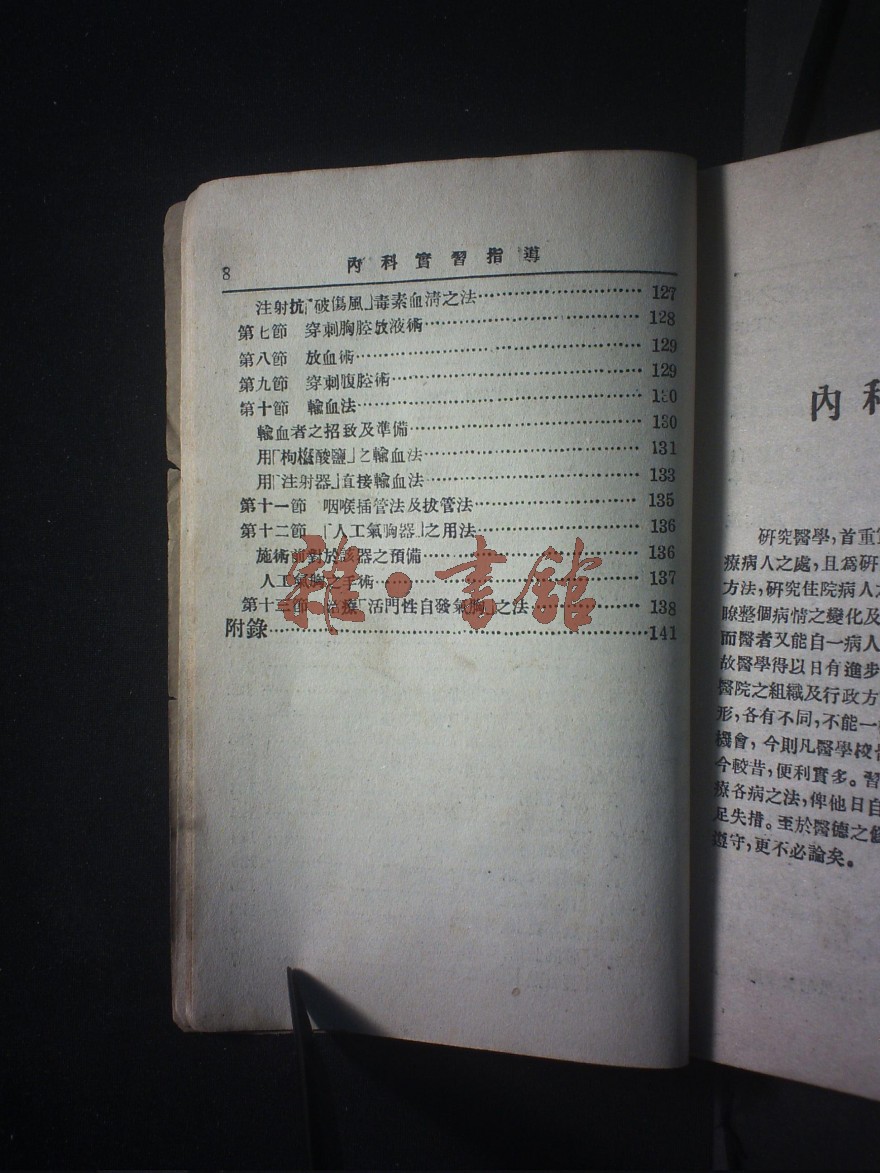 8 內科實習指導
注射抗「破傷風」毒素血清之法……127
第七節 穿刺胸腔放液術……128
第八節 放血術……129
第九節 穿刺腹腔術……129
第十節 輸血法……130
輸血者之招致及準備……130
用「枸櫞酸鹽」之輸血法……131
用「注射器」直接輸血法……133
第十一節 咽喉插管法及拔管法……135
第十二節 「人工氣胸器」之用法……136
施術前對於該器之預備……136
人工氣胸之手術……137
第十三節 治療「活門性自發氣胸」之法……138
附錄……141
雅·書館
內科
研究醫學,首重
療病人之處,且爲研
方法,研究住院病人
瞭整個病情之變化及
而醫者又能自一病人
故醫學得以日有進步
醫院之組織及行政方
形,各有不同,不能一
機會,今則凡醫學校
今較昔,便利實多。習
療各病之法,俾他日自
足失措。至於醫德之
遵守,更不必論矣。